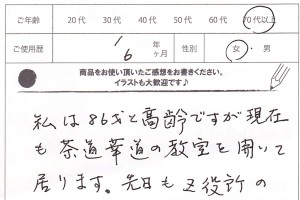 ご年齢 20代 30代 40代 50代 60代 70代以上
ご使用歴 1年6ヶ月 性別 女・男
商品をお使い頂いたご感想をお書きください。
イラストも大歓迎です♪
私は86才と高齢ですが現在
も茶道華道の教室を開いて
居ります。先日も区役所の